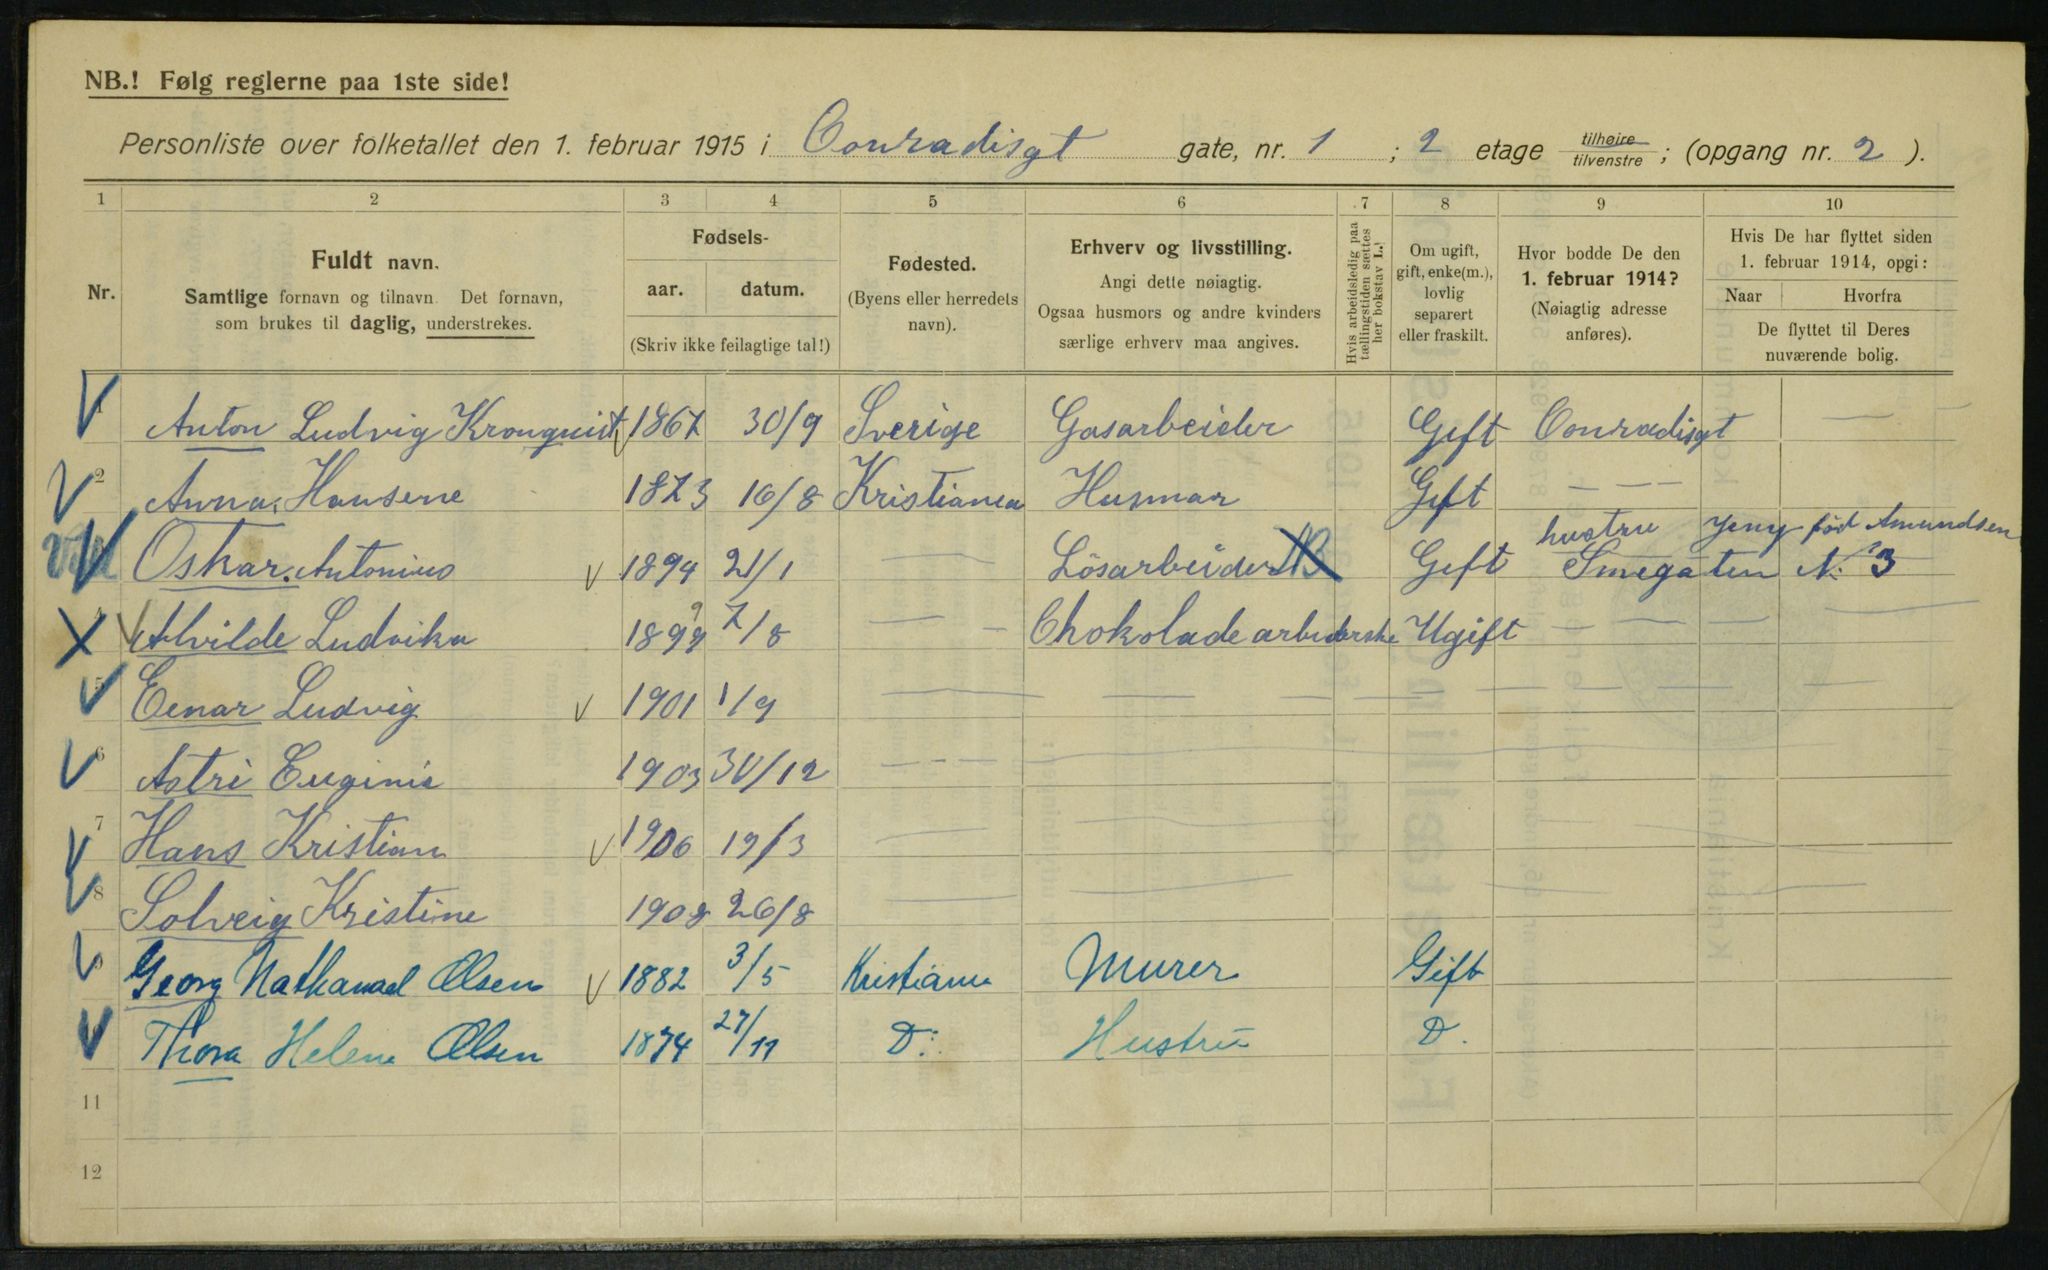 NB.! Følg reglerne paa 1ste side!
Personliste over folketallet den 1. februar 1915 i Conradisgt gate, nr. 1 ; 2 etage tilhøire tilvenstre ; (opgang nr. 2 ).
1 2 3 4 5 6 7 8 9 10
Nr.
Fuldt navn.
Samtlige fornavn og tilnavn. Det fornavn,
som brukes til daglig, understrekes.
Fødsels-
aar. datum.
(Skriv ikke feilagtige tal!)
Fødested.
(Byens eller herredets
navn).
Erhverv og livsstilling.
Angi dette nøiagtig.
Ogsaa husmors og andre kvinders
særlige erhverv maa angives.
Hvis arbeidsledig paa
tællingstiden sættes
her bokstav L.
Om ugift,
gift, enke(m.),
lovlig
separert
eller fraskilt.
Hvor bodde De den
1. februar 1914?
(Nøiagtig adresse
anføres).
Hvis De har flyttet siden
1. februar 1914, opgi:
Naar Hvorfra
De flyttet til Deres
nuværende bolig.
1 Anton Ludvig Kronquist 1867 30/9 Sverige Gasarbeider Gift Conradisgt —
2 Anna Hansene 1873 16/8 Kristiania Husmor Gift — — —
hustru Jeny föd Amundsen
Oskar Antonius 1894 21/1 — Lösarbeider NB Gift Smegaten N: 3
4 Alvilde Ludvika 1899 9 7/8 — — Chokoladearbederske Ugift — — — —
5 Einar Ludvig 1901 1/9 — — — — — — — —
6 Astri Euginie 1903 30/12 — — —
7 Hans Kristian 1906 19/3 — — —
8 Solveig Kristine 1908 26/8 — — — —
9 Georg Nathanael Olsen 1882 3/5 Kristiania Murer Gift
Thora Helene Olsen 1874 27/11 D: Hustru D.
11
12